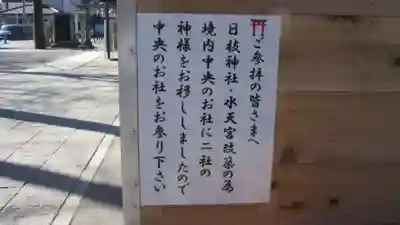 ⛩ご参拝の皆さまへ
日枝神社・水天宮改築の為
境内中央のお社に二社の
神様をお移ししましたので
中央のお社をお参り下さい